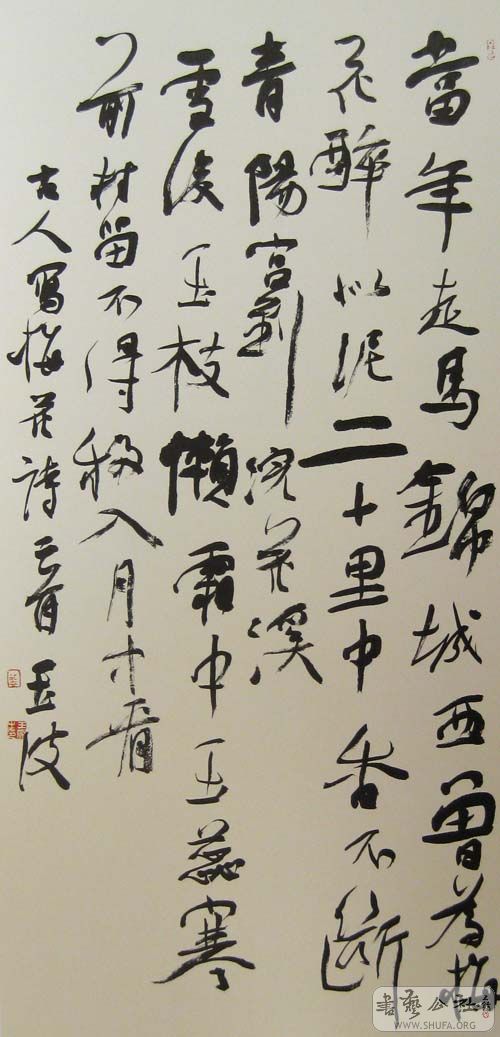 當年走馬錦城西曾為梅
花醉似泥二十里中香不斷
青陽宮到浣花溪
雪後玉枝懶霜中玉蕊寒
前村留不得移入月中看
古人寫梅花詩二首 玉波
書藝公社
WWW.SHUFA.ORG